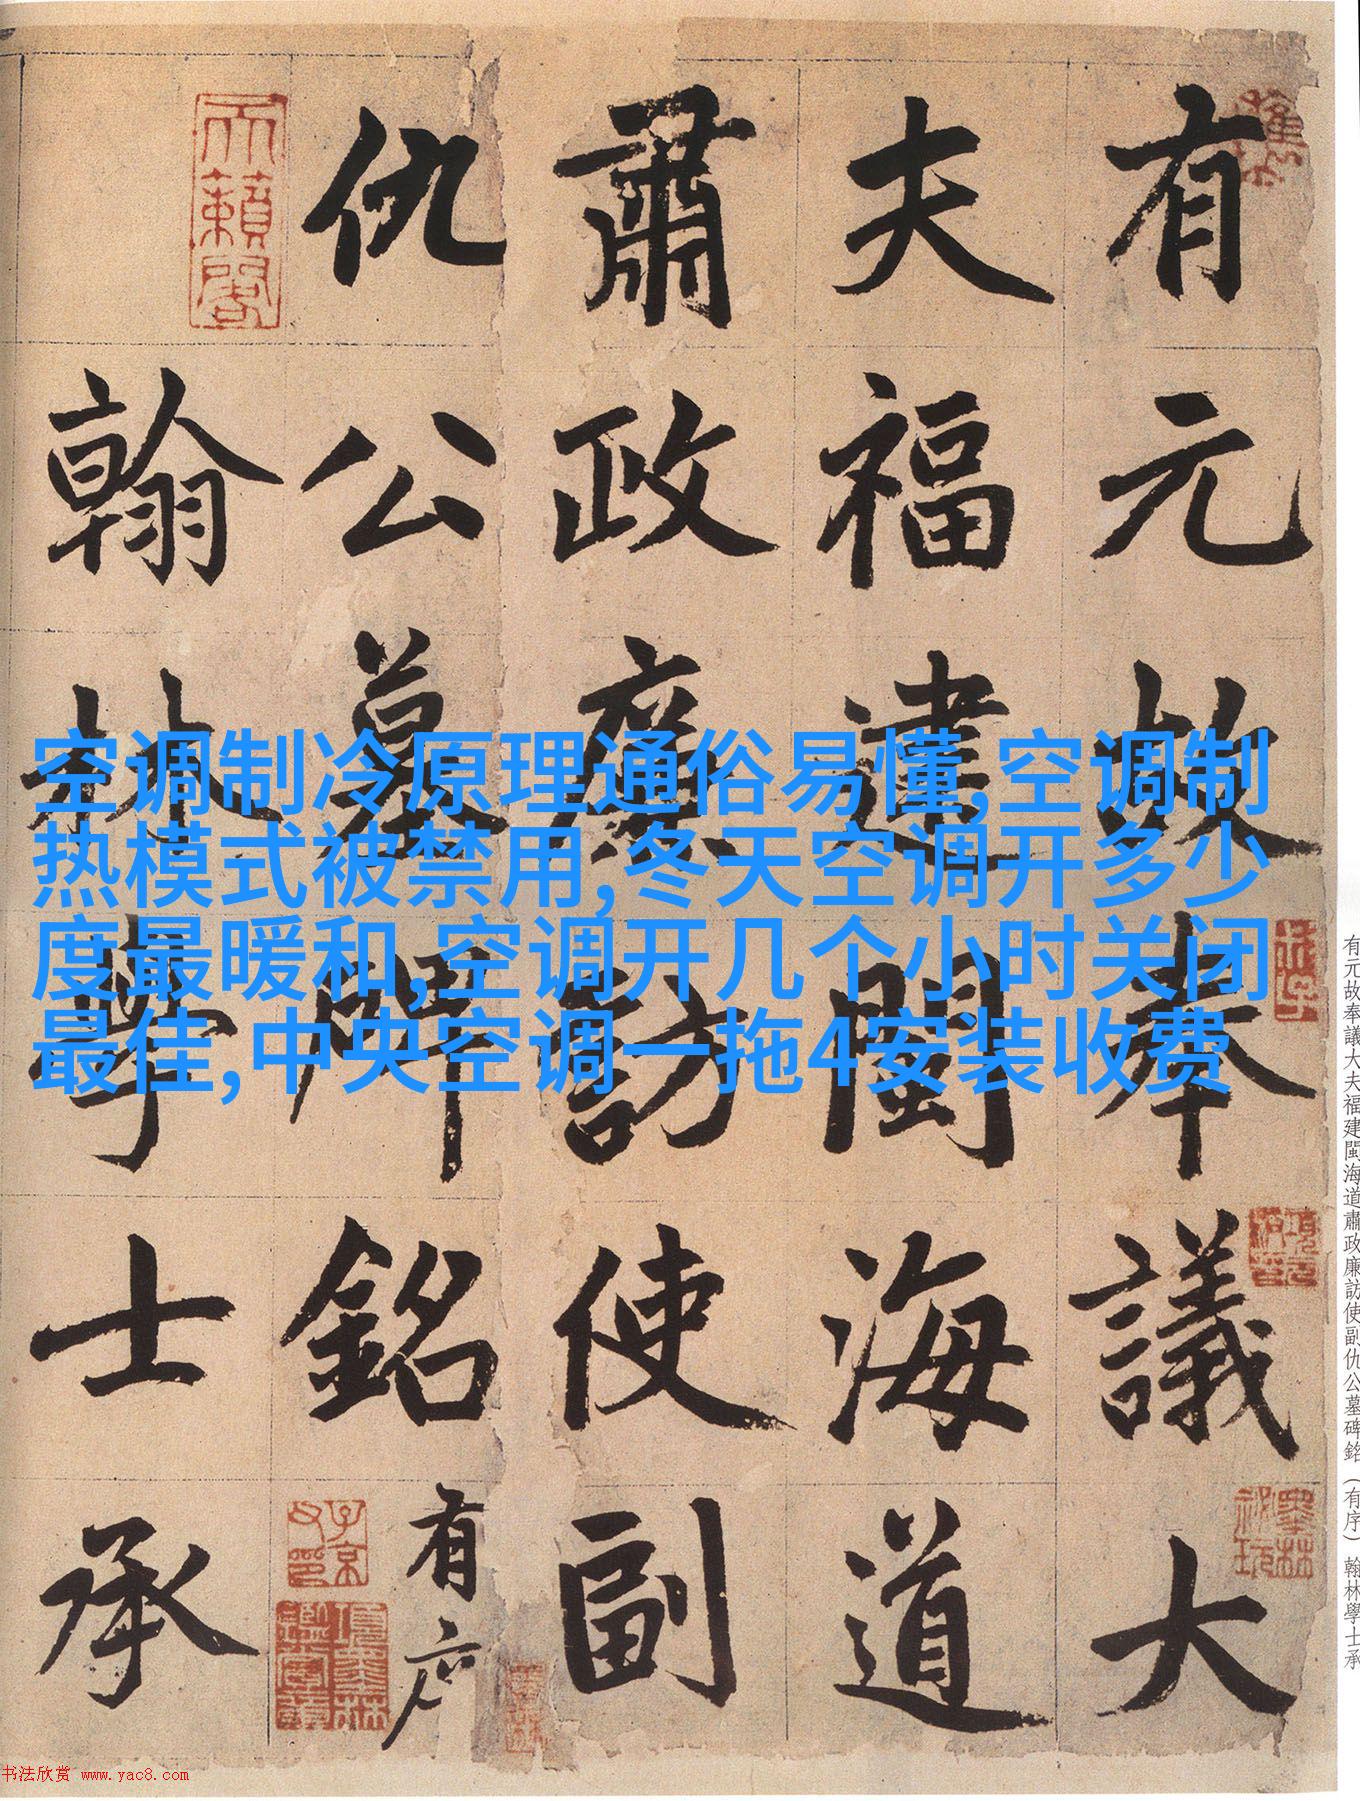 有元故奉議大
夫福建閩海道
肅政廉訪使副
仇公墓碑銘有序
翰林學士承
天籟閣
子京父印
空调制冷原理通俗易懂,空调制
热模式被禁用,冬天空调开多少
度最暖和,空调开几个小时关闭
最佳,中央空调一拖4安装收费
有元故奉議大夫福建閩海道肅政廉訪使副仇公墓碑銘(有序) 翰林學士承
书法欣赏 www.yac8.com